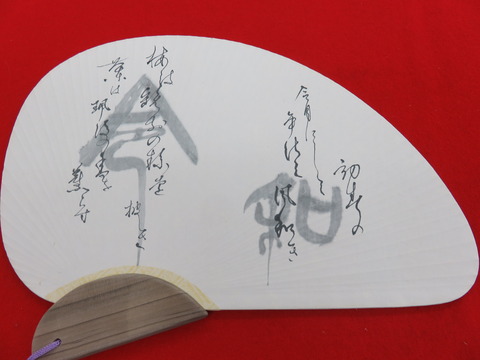 初春の
令月にして
気淑く風和き
梅は鏡前の粉を
披き
蘭は珮後の香を
薫らす
令和